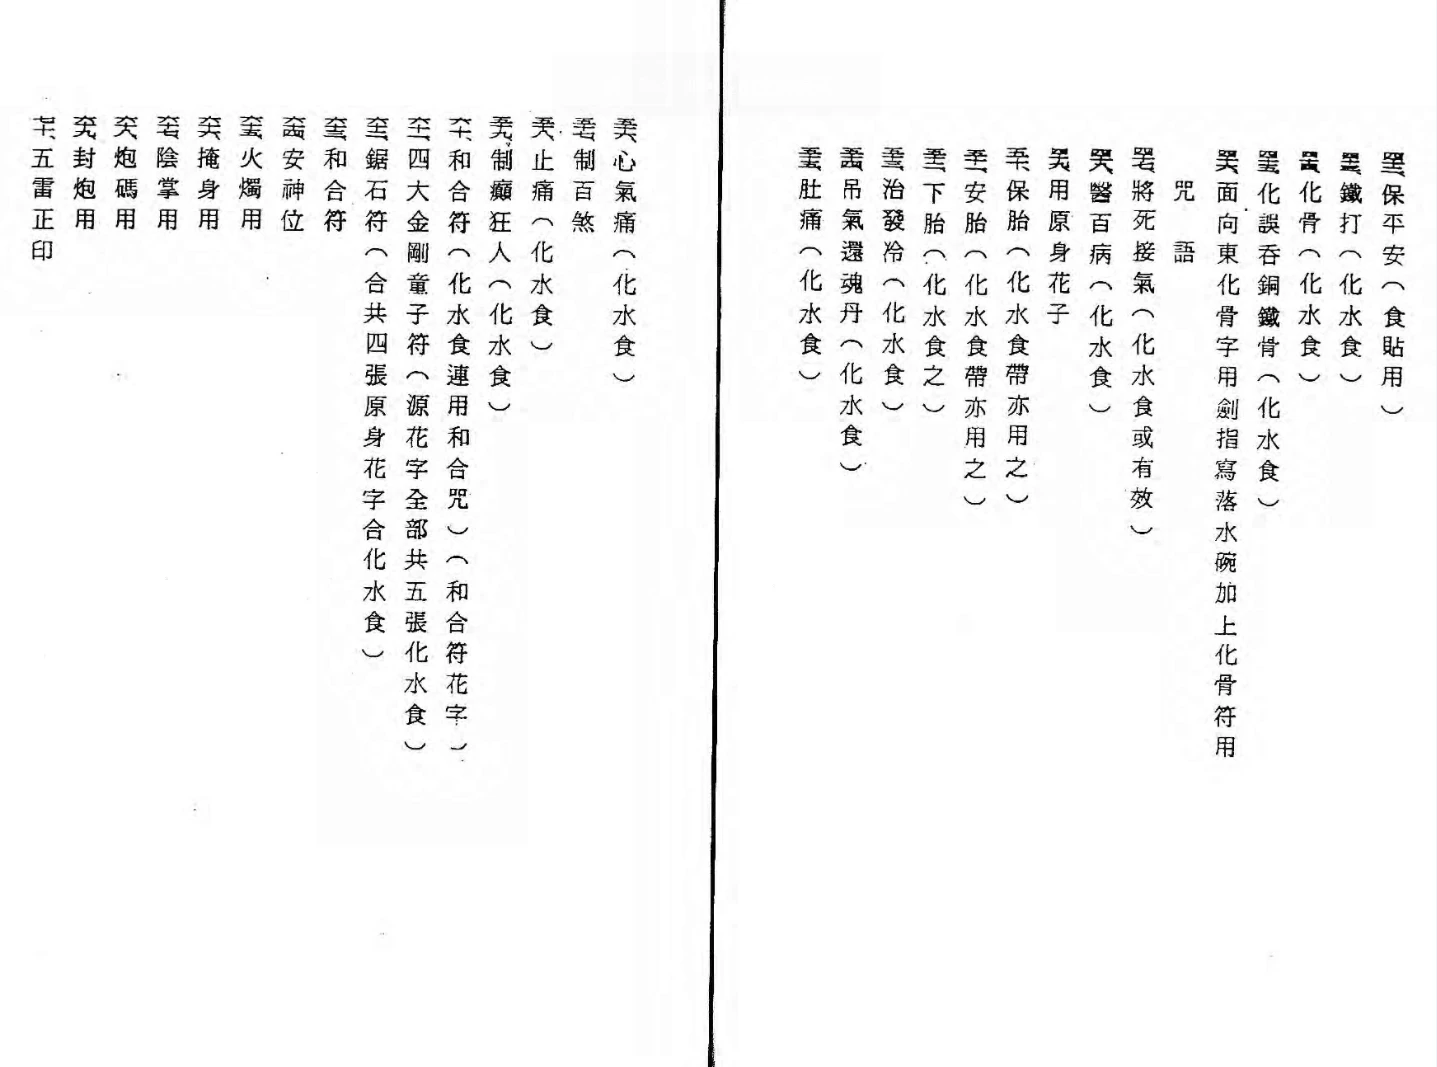 四二、保平安（食貼用）
四三、鐵打（化水食）
四四、化骨（化水食）
四五、化誤吞銅鐵骨（化水食）
四六、面向東化骨字用劍指寫落水碗加上化骨符用
咒語
四七、將死接氣（化水食或有效）
四八、醫百病（化水食）
四九、用原身花子
五十、保胎（化水食帶亦用之）
五一、安胎（化水食帶亦用之）
五二、下胎（化水食之）
五三、治發冷（化水食）
五四、吊氣還魂丹（化水食）
五五、肚痛（化水食）
五六、心氣痛（化水食）
五七、制百煞
五八、止痛（化水食）
五九、制癲狂人（化水食）
六十、和合符（化水食連用和合咒）（和合符花字）
六一、四大金剛童子符（源花字全部共五張化水食）
六二、鋸石符（合共四張原身花字合化水食）
六三、和合符
六四、安神位
六五、火燭用
六六、掩身用
六七、陰掌用
六八、炮碼用
六九、封炮用
七十、五雷正印